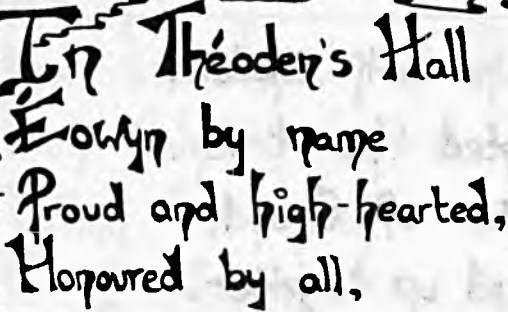 In Théoden's Hall
Éowyn by name
Proud and high-hearted,
Honoured by all,